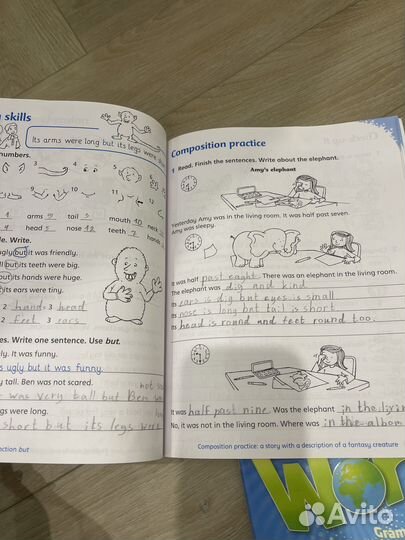 skills
Its arms were long but its legs were
numbers.
3
4
5
6
9
10
11
12
1 arms 9 tail 5 mouth 10 neck
head 5 nose 12 teeth 2 hands
le. Write.
ugly but it was friendly.
all but its teeth were big.
but its hands were huge.
but its ears were tiny.
2 hands 3 head
2 feet 3 ears
es. Write one sentence. Use but.
ly. It was funny.
s ugly but it was funny.
y tall. Ben was not scared.
not
was very tall but Ben
egs were long.
short but its legs were
ction but
Composition practice
1 Read. Finish the sentences. Write about the elephant.
Amy's elephant
Yesterday Amy was in the living room. It was half past seven.
Amy was sleepy.
It was half past eaght. There was an elephant in the living room.
The elephant was dig and kind
Its ears is dig but eyes is small
Its nose is long bat tail is short
Its head is round and feet round too.
It was half past nine. Was the elephant in the livin
No, it was not in the living room. Where was in the albom
Composition practice: a story with a description of a fantasy creature
WO
Gram
Avito